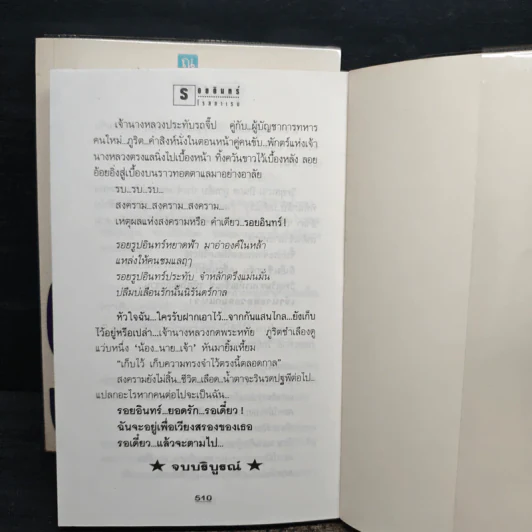 รอยอินทร์
โรสลาเรน
เจ้านางหลวงประทับรถจี๊ป คู่กับ..ผู้บัญชาการทหาร
คนใหม่..ภูริต..คำสิงห์นั่งในตอนหน้าคู่คนขับ..พักตร์แห่งเจ้า
นางหลวงตรงแลนิ่งไปเบื้องหน้า ทิ้งควันขาวไว้เบื้องหลัง ลอย
อ้อยอิ่งสู่เบื้องบนราวทอดตาแลมาอย่างอาลัย
รบ...รบ...รบ...
สงคราม...สงคราม...สงคราม...
เหตุผลแห่งสงครามหรือ คำเดียว..รอยอินทร์!
รอยรูปอินทร์หยาดฟ้า มาอ่าองค์ในหล้า
แหล่งให้คนชมแลฤๅ
รอยรูปอินทร์ประทับ จำหลักตรึงแม่นมั่น
ปลิมปเลื่อนรักนั้นนิรันดร์กาล
หัวใจฉัน...ใครรับฝากเอาไว้...จากกันแสนไกล...ยังเก็บ
ไว้อยู่หรือเปล่า...เจ้านางหลวงกดพระหทัย ภูริตชำเลืองดู
แวบหนึ่ง 'น้อง..นาย..เจ้า' หันมายิ้มเหี้ยม
"เก็บไว้ เก็บความทรงจำไว้ตรงนี้ตลอดกาล"
สงครามยังไม่สิ้น..ชีวิต..เลือด..น้ำตาจะรินรดปฐพีต่อไป..
แปลกอะไรหากคนต่อไปจะเป็นฉัน..
รอยอินทร์...ยอดรัก...รอเดี๋ยว!
ฉันจะอยู่เพื่อเวียงสรองของเธอ
รอเดี๋ยว...แล้วจะตามไป...
★ จบบริบูรณ์ ★
510